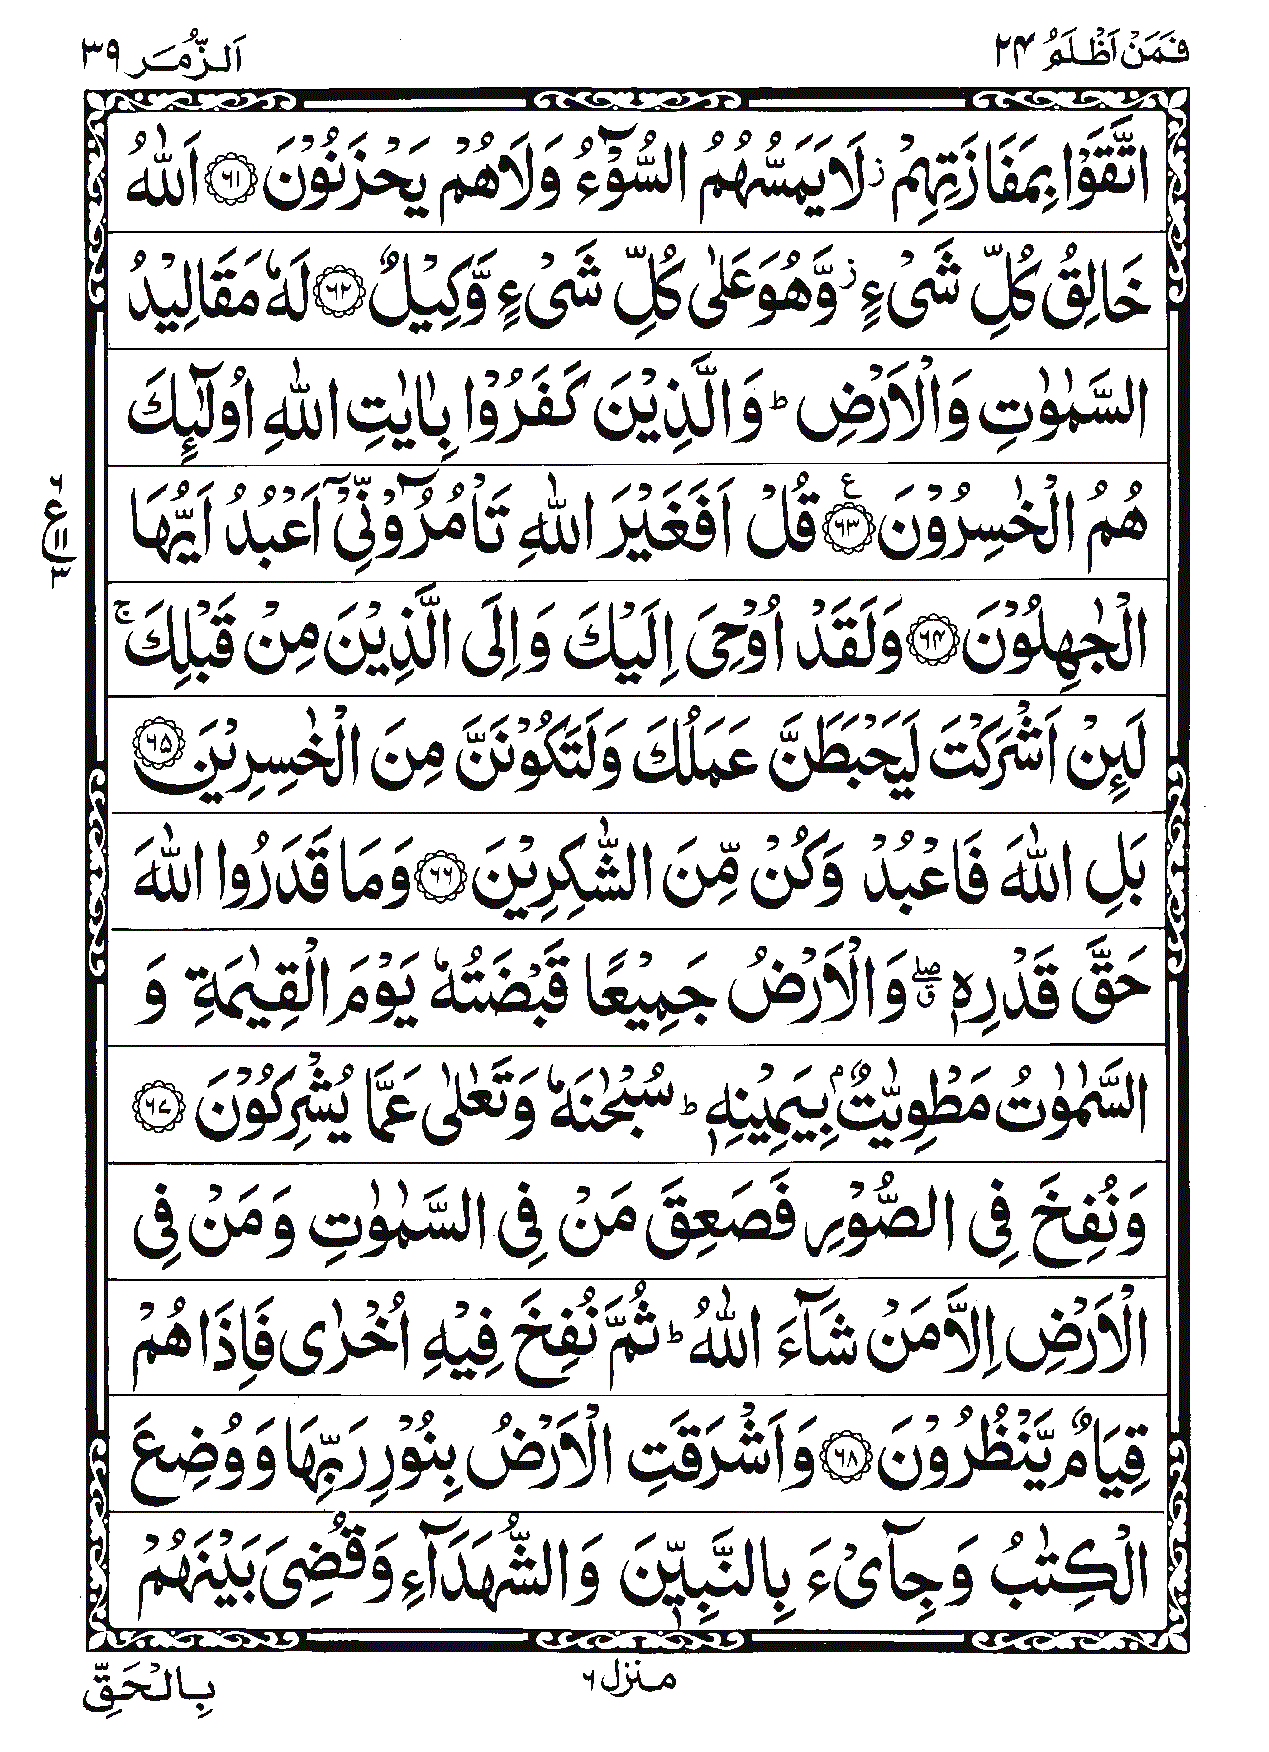 فَمَنْ اَظْلَمُ ۲۴
اَلزُّمَر ۳۹
اتَّقَوْا بِمَفَازَتِهِمْ ز لَا يَمَسُّهُمُ السُّوْٓءُ وَلَا هُمْ يَحْزَنُوْنَ ﴿۶۱﴾ اَللّٰهُ
خَالِقُ كُلِّ شَىْءٍ ز وَّهُوَ عَلٰى كُلِّ شَىْءٍ وَّكِيْلٌ ﴿۶۲﴾ لَهٗ مَقَالِيْدُ
السَّمٰوٰتِ وَالْاَرْضِ ؕ وَالَّذِيْنَ كَفَرُوْا بِاٰيٰتِ اللّٰهِ اُولٰٓئِكَ
هُمُ الْخٰسِرُوْنَ ﴿۶۳﴾ ع قُلْ اَفَغَيْرَ اللّٰهِ تَاْمُرُوْٓنِّىْٓ اَعْبُدُ اَيُّهَا
۶
ع
۱۱
۳
الْجٰهِلُوْنَ ﴿۶۴﴾ وَلَقَدْ اُوْحِىَ اِلَيْكَ وَاِلَى الَّذِيْنَ مِنْ قَبْلِكَ ۚ
لَئِنْ اَشْرَكْتَ لَيَحْبَطَنَّ عَمَلُكَ وَلَتَكُوْنَنَّ مِنَ الْخٰسِرِيْنَ ﴿۶۵﴾
بَلِ اللّٰهَ فَاعْبُدْ وَكُنْ مِّنَ الشّٰكِرِيْنَ ﴿۶۶﴾ وَمَا قَدَرُوا اللّٰهَ
حَقَّ قَدْرِهٖ ۖق وَالْاَرْضُ جَمِيْعًا قَبْضَتُهٗ يَوْمَ الْقِيٰمَةِ وَ
السَّمٰوٰتُ مَطْوِيّٰتٌۢ بِيَمِيْنِهٖ ؕ سُبْحٰنَهٗ وَتَعٰلٰى عَمَّا يُشْرِكُوْنَ ﴿۶۷﴾
وَنُفِخَ فِى الصُّوْرِ فَصَعِقَ مَنْ فِى السَّمٰوٰتِ وَمَنْ فِى
الْاَرْضِ اِلَّا مَنْ شَآءَ اللّٰهُ ؕ ثُمَّ نُفِخَ فِيْهِ اُخْرٰى فَاِذَا هُمْ
قِيَامٌ يَّنْظُرُوْنَ ﴿۶۸﴾ وَاَشْرَقَتِ الْاَرْضُ بِنُوْرِ رَبِّهَا وَوُضِعَ
الْكِتٰبُ وَجِآىْءَ بِالنَّبِيّٖنَ وَالشُّهَدَآءِ وَقُضِىَ بَيْنَهُمْ
منزل ۶
بِالْحَقِّ